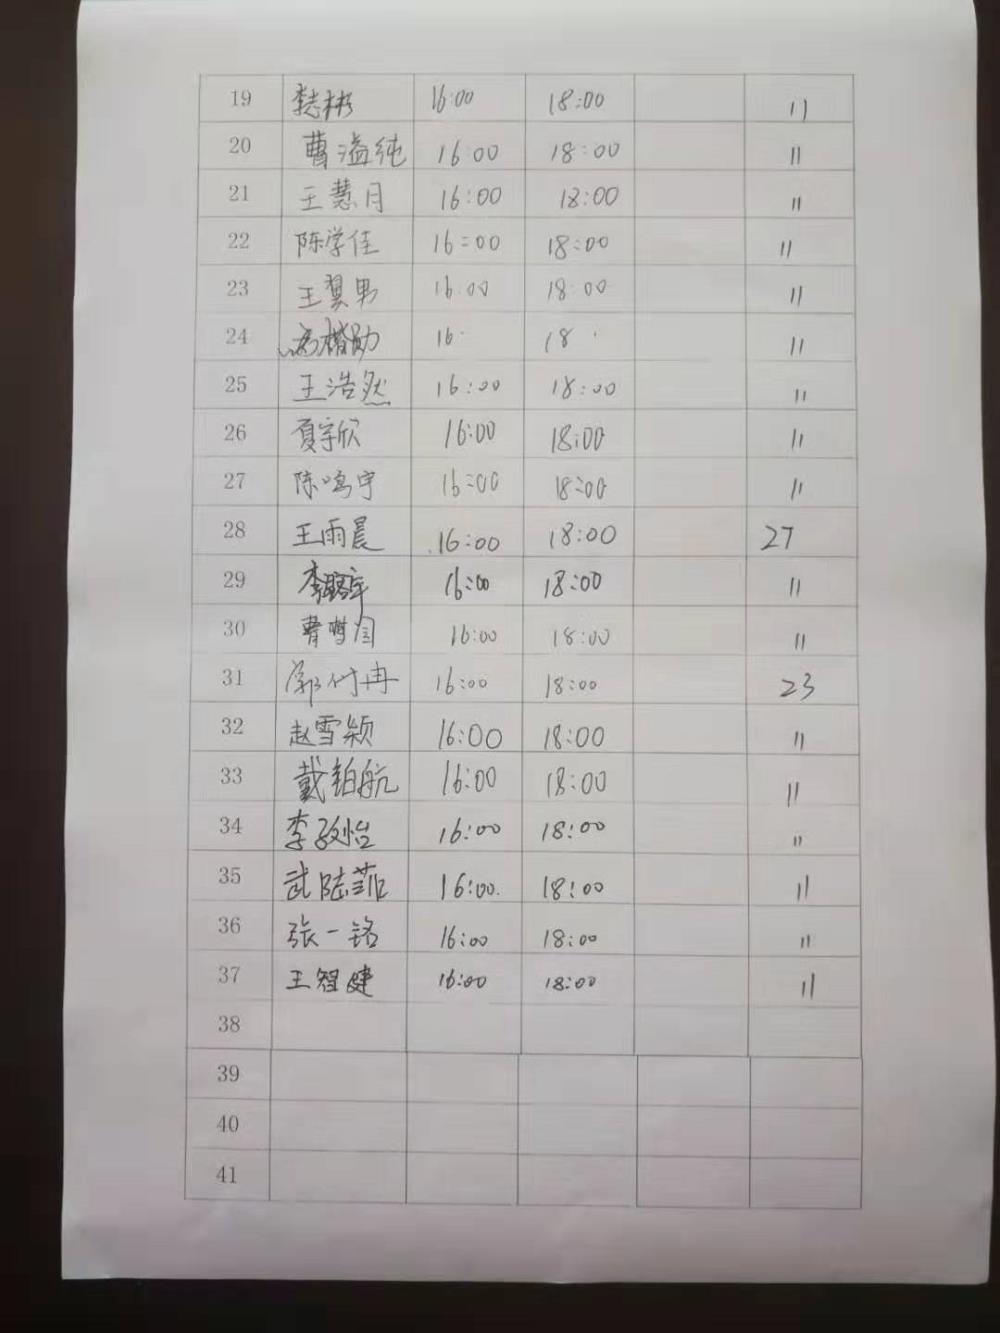 19 李志彬 16:00 18:00 11
20 曹溢纯 16:00 18:00 11
21 王慧月 16:00 18:00 11
22 陈学佳 16:00 18:00 11
23 王翼男 16:00 18:00 11
24 16 18 11
25 王浩然 16:00 18:00 11
26 夏宇欣 16:00 18:00 11
27 陈鸣宇 16:00 18:00 11
28 王雨晨 16:00 18:00 27
29 16:00 18:00 11
30 16:00 18:00 11
31 16:00 18:00 23
32 赵雪颖 16:00 18:00 11
33 戴铂航 16:00 18:00 11
34 李孜怡 16:00 18:00 11
35 武陆菲 16:00 18:00 11
36 张一铭 16:00 18:00 11
37 王智健 16:00 18:00 11
38
39
40
41